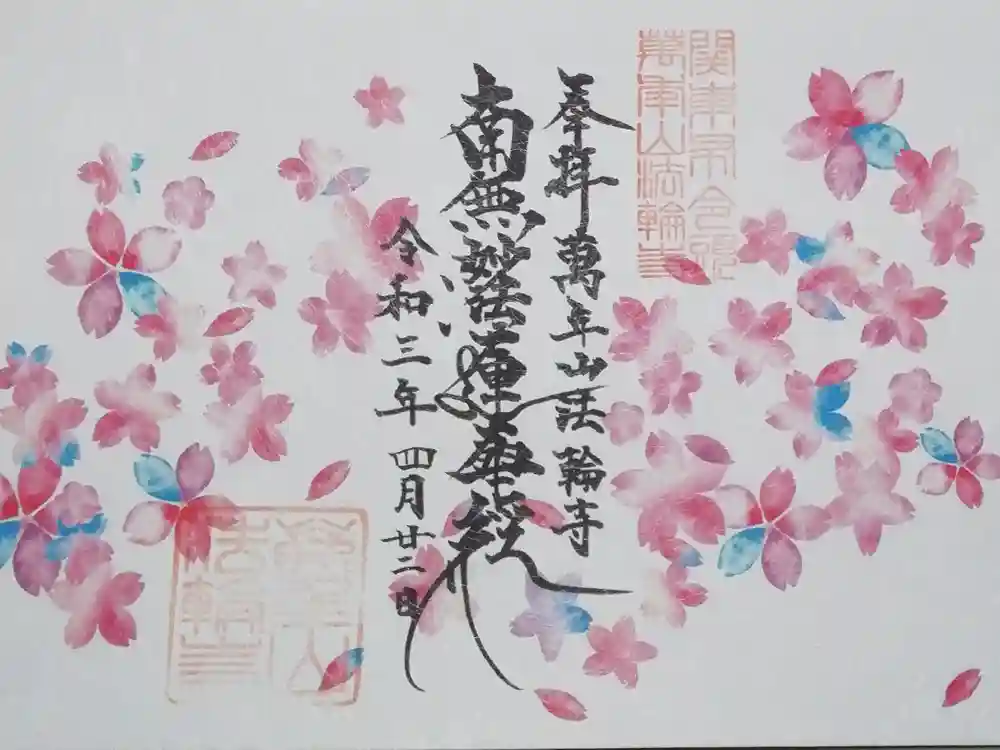 奉拝 萬年山法輪寺
南無妙法蓮華経
令和三年 四月廿二日
萬年山法輪寺
萬年山
法輪寺